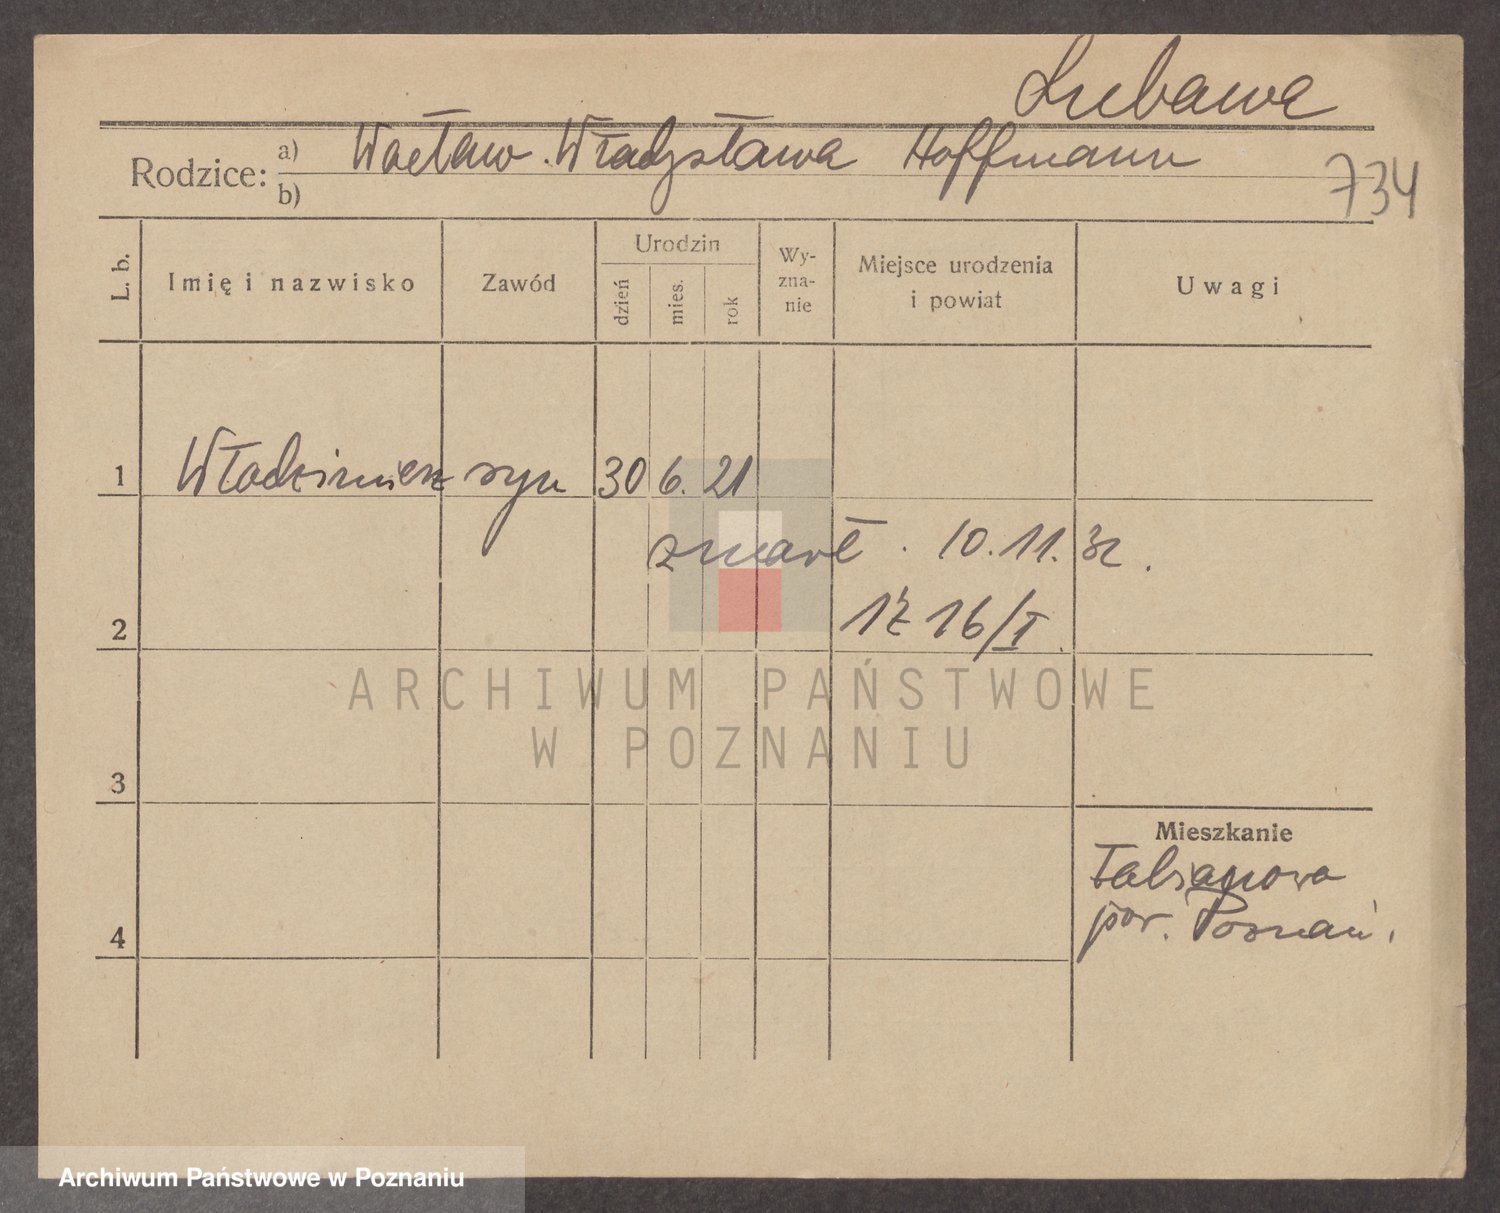 Lubawa
Rodzice: a) Wacław. Władysława Hoffmann
b)
734
L. b.
Imię i nazwisko
Zawód
Urodzin
dzień
mies.
rok
Wy-
zna-
nie
Miejsce urodzenia
i powiat
Uwagi
1 Włodzimierz syn 30 6. 21
zmarł. 10.11.32.
2 16/I.
ARCHIWUM PAŃSTWOWE
W POZNANIU
3
Mieszkanie
Fabianowo
pow. Poznań.
4
Archiwum Państwowe w Poznaniu